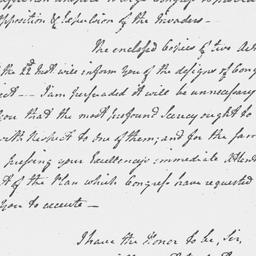 Opposition & Expulsion of the Invaders—
The enclosed Copies of two Acts
the 22d Inst. will inform you of the designs of Cong
ject— I am persuaded it will be unnecessary
you that the most profound Secrecy ought to
with respect to one of them; and for the same
pressing your Excellency's immediate Attent
t of the Plan which Congress have requested
you to execute—
I have the Honor to be, Sir,